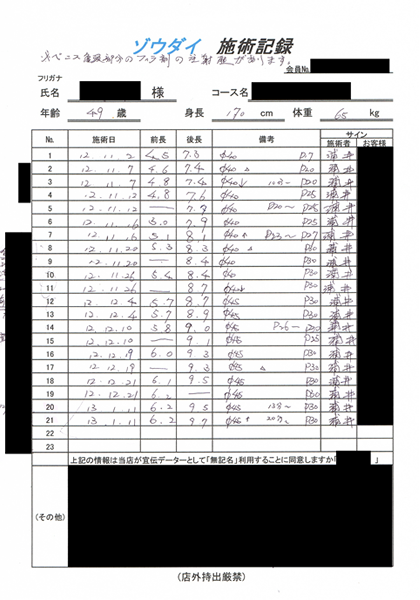 ゾウダイ 施術記録
会員No.
フリガナ
氏名 様 コース名
年齢 49 歳 身長 170 cm 体重 65 kg
No. 施術日 前長 後長 備考 サイン
施術者 お客様
1 12.11.2 7.3 φ40 浦井
2 12.11.7 4.6 7.4 φ40 P20 浦井
3 12.11.7 4.8 φ40 P20 浦井
4 12.11.12 4.8 7.6 φ40 P25 浦井
5 12.11.12 — 7.9 φ40 P20〜 P25 浦井
6 12.11.16 5.0 7.9 φ40 P25 浦井
7 12.11.16 5.1 8.1 φ40 P27 浦井
8 12.11.20 5.3 8.3 φ40 P30 浦井
9 12.11.20 — 8.4 φ40 P30 浦井
10 12.11.26 5.4 8.4 φ40 P30 浦井
11 12.11.26 — 8.7 P30 浦井
12 12.12.4 5.7 8.7 φ45 P30 浦井
13 12.12.4 5.7 8.9 φ45 P30 浦井
14 12.12.10 5.8 9.0 φ45 P26〜 浦井
15 12.12.10 — 9.1 φ45 P25 浦井
16 12.12.19 6.0 9.3 φ45 P30 浦井
17 12.12.19 — 9.3 φ45 P30 浦井
18 12.12.21 6.1 9.5 φ45 P30 浦井
19 12.12.21 6.2 — φ45 P30 浦井
20 13.1.11 6.2 9.5 φ45 P30 浦井
21 13.1.11 6.2 9.7 φ45 P30 浦井
22
23
上記の情報は当店が宣伝データーとして「無記名」利用することに同意しますか 」
(その他)
(店外持出厳禁)